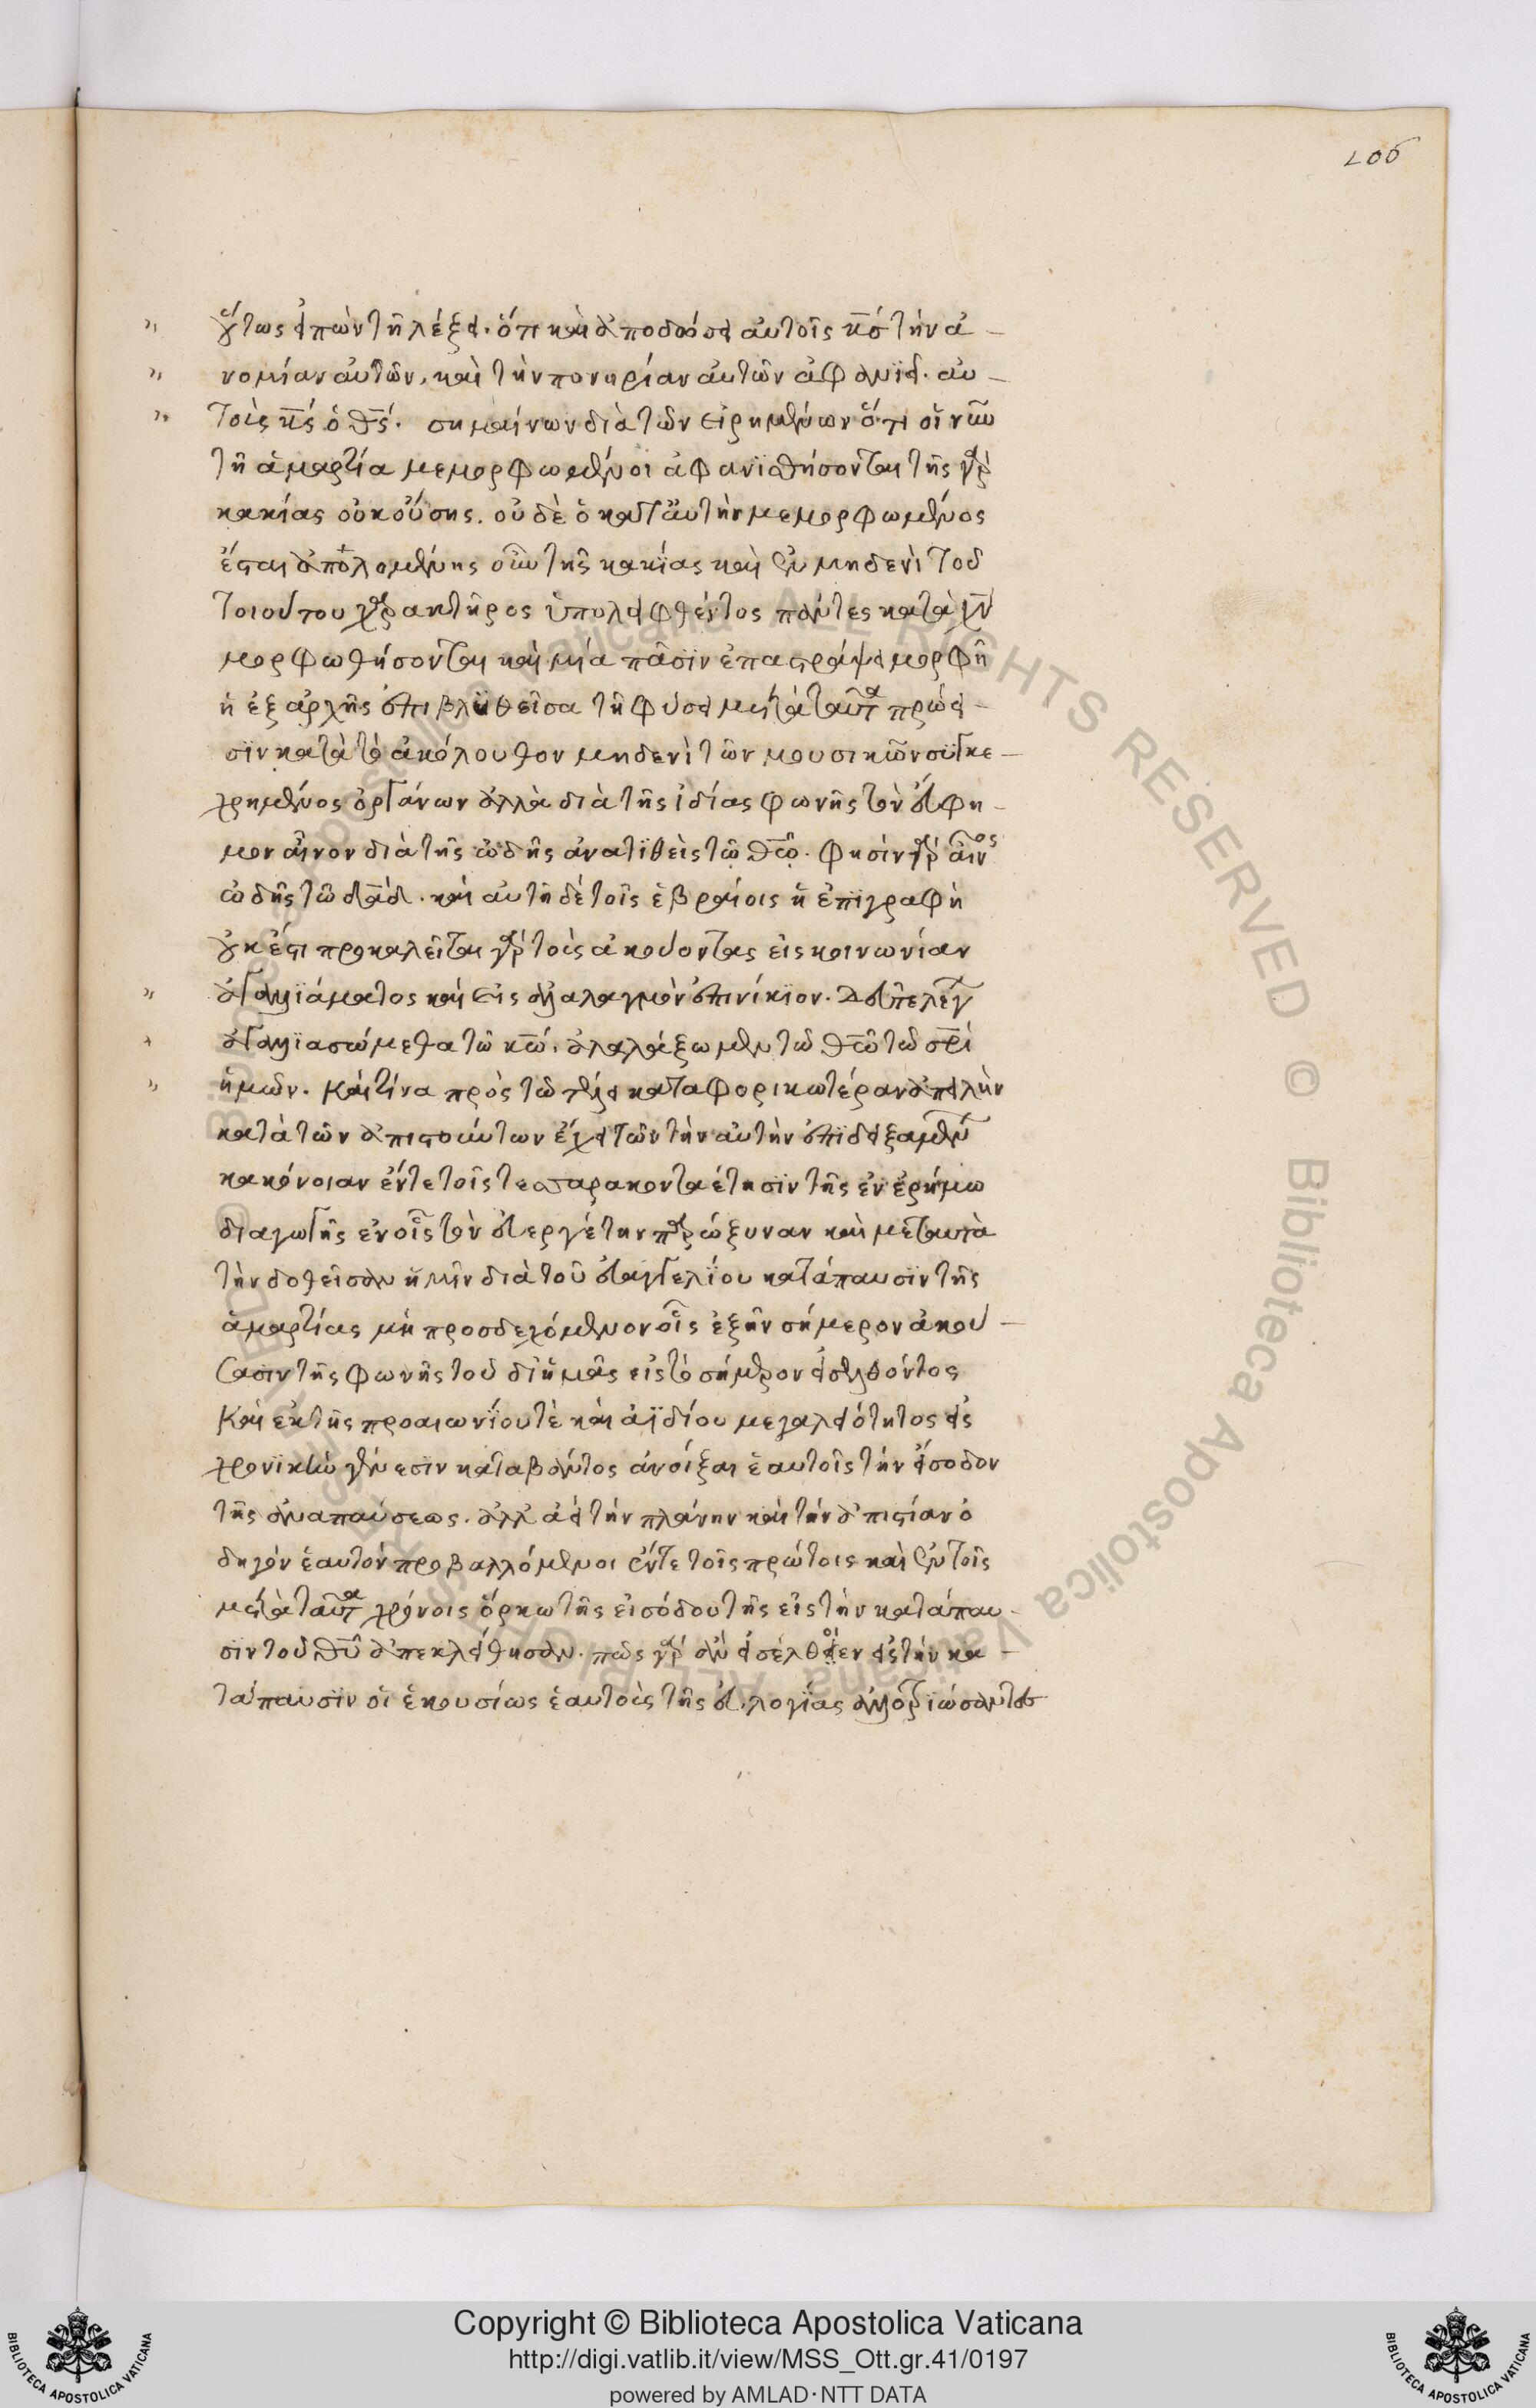 206
οὕτως εἰπὼν τῇ λέξει. ὅτι καὶ ἀποδώσει αὐτοῖς κ̅ς̅ τὴν ἀ-
νομίαν αὐτῶν, καὶ τὴν πονηρίαν αὐτῶν ἀφανιεῖ. αὐ-
τοὺς κ̅ς̅ ὁ θ̅ς̅. σημαίνων διὰ τῶν εἰρημένων ὅτι οἱ νῦν
τῇ ἁμαρτία μεμορφωμένοι ἀφανϊσθήσονται τῆς γὰρ
κακίας οὐκ οὔσης. οὐδὲ ὁ κατ' αὐτὴν μεμορφωμένος
ἔσται ἀπολομένης οὖν τῆς κακίας καὶ ἐν μηδενὶ τοῦ
τοιούτου χαρακτῆρος ὑπολειφθέντος πάντες κατὰ χ̅ν̅
μορφωθήσονται καὶ μία πᾶσϊν ἐπαστράψει μορφὴ
ἡ ἐξ ἀρχῆς ἐπιβληθεῖσα τῇ φύσει μετὰ ταῦτα πρόει-
σϊν κατὰ τὸ ἀκόλουθον μηδενὶ τῶν μουσικῶν συγκε-
χρημένος ὀργάνων ἀλλὰ διὰ τῆς ἰδίας φωνῆς τὸν εὔφη-
μον αἶνον διὰ τῆς ὠδῆς ἀνατϊθεὶς τῷ θ̅ω̅. φησὶν γὰρ αἶνος
ὠδῆς τῶ δ̅α̅δ̅. καὶ αὐτη δὲ τοῖς ἑβραίοις ἡ ἐπϊγραφὴ
οὐκ ἔστι προκαλεῖται γὰρ τοὺς ἀκούοντας εἰς κοινωνίαν
ἀγαλλϊάματος καὶ εἰς ἀλαλαγμὸν ἐπινίκϊον. δεῦτε λέγων
ἀγαλλϊασώμεθα τῶ κ̅ω̅. ἀλαλάξωμεν τῶ θ̅ω̅ τῶ σ̅ρ̅ι̅
ἡμῶν. καί τινα πρὸς τῶ τέλει καταφορικωτέραν ἀπειλὴν
κατὰ τῶν ἀπιστούντων ἔχει τῶν τὴν αὐτὴν ἐπϊδειξαμένων
κακόνοιαν ἔν τε τοῖς τεσσαρακονταέτησϊν τῆς ἐν ἐρήμω
διαγωγῆς ἐν οἷς τὸν εὐεργέτην παρώξυναν καὶ μεταυτὰ
τὴν δοθεῖσαν ἡμῖν διὰ τοῦ εὐαγγελίου κατάπαυσϊν τῆς
ἁμαρτίας μὴ προσδεχόμενον οἷς ἐξῆν σήμερον ἀκού-
σασιν τῆς φωνῆς τοῦ δι' ἡμᾶς εἰς τὸ σήμερον εἰσελθόντος
καὶ ἐκ τῆς προαιωνίου τὲ καὶ ἀϊδίου μεγαλειότητος εἰς
χρονικὴν γένεσιν καταβάντος ἀνοίξαι ἑαυτοῖς τὴν εἴσοδον
τῆς ἀναπαύσεως. ἀλλ' ἀεὶ τὴν πλάνην καὶ τὴν ἀπιστίαν ὁ
δηγὸν ἑαυτὸν προβαλλόμενοι ἔν τε τοῖς πρώτοις καὶ ἐν τοῖς
μετὰ ταῦτα χρόνοις ὅρκω τῆς εἰσόδου τῆς εἰς τὴν κατάπαυ-
σιν τοῦ θ̅υ̅ ἀπεκλείσθησαν. πῶς γὰρ ἂν εἰσέλθοιεν εἰς τὴν κα-
τάπαυσϊν οἱ ἑκουσίως ἑαυτοὺς τῆς εὐλογίας ἀλλοτριώσαντες
Copyright © Biblioteca Apostolica Vaticana
http://digi.vatlib.it/view/MSS_Ott.gr.41/0197
powered by AMLAD·NTT DATA